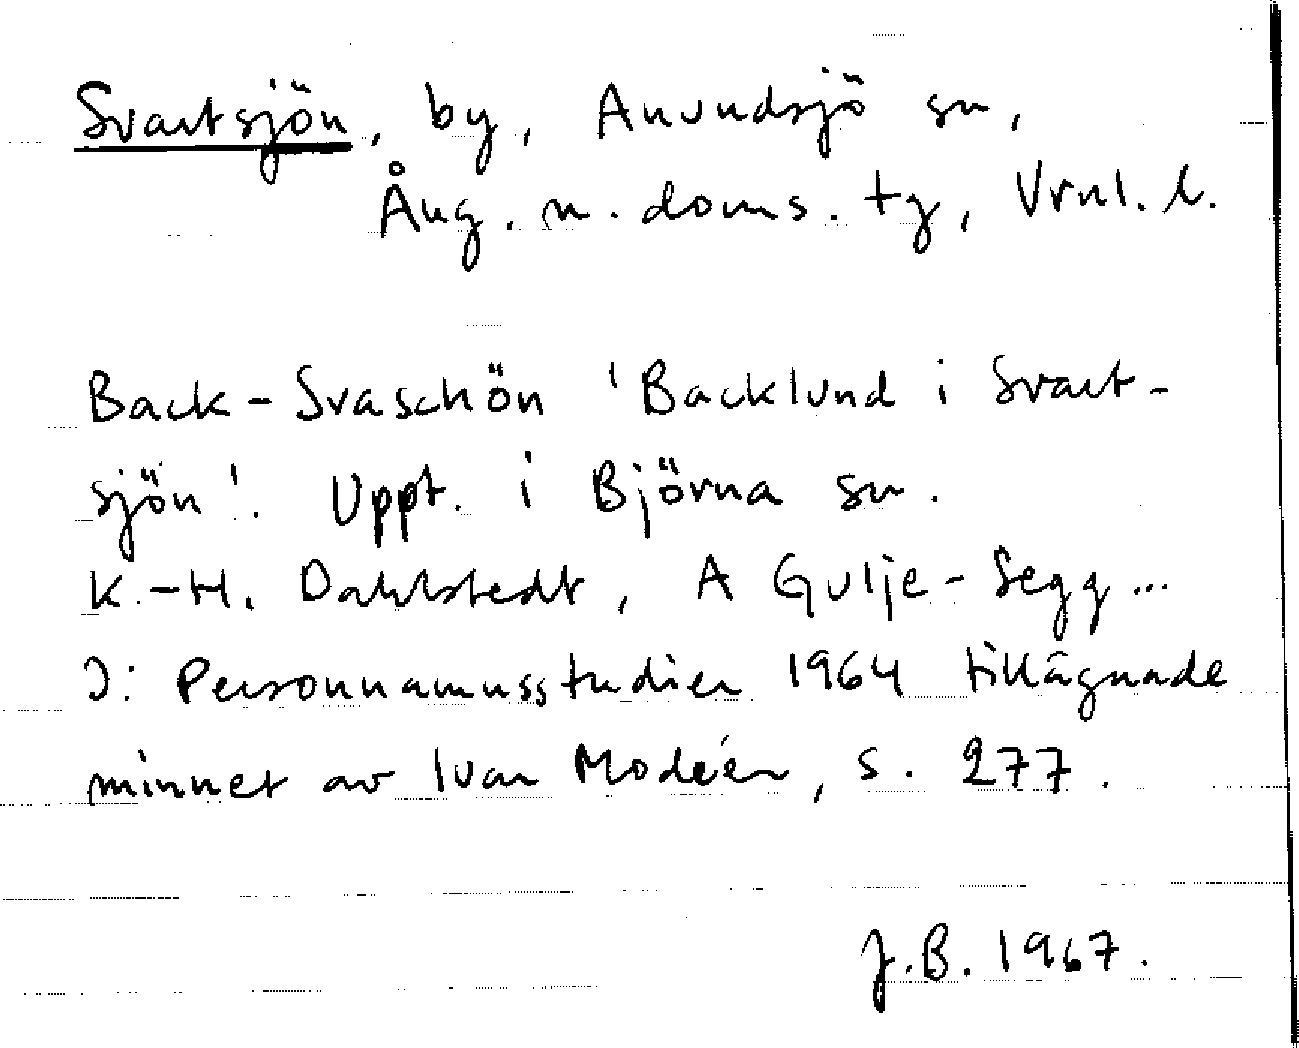 Svartsjön, by, Anundsjö sn,
Ång. n. doms. tg, Vrnl. l.
Back-Svaschön 'Backlund i Svart-
sjön'. Uppt. i Björna sn.
K.-H. Dahlstedt, A Gulje-Segg...
I: Personnamnsstudier 1964 tillägnade
minnet av Ivar Modéer, s. 277.
J.B. 1967.